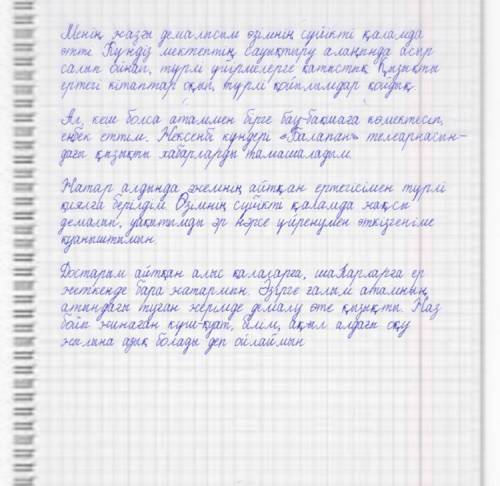 Менің жазғы демалысым өзімнің сүйікті қаламда
өтті. Күндіз мектептің сауықтыру алаңында асыр
салып ойнап, түрлі үйірмелерге қатыстық. Қызықты
ертегі кітаптар оқып, түрлі қойылымдар қойдық.
Ал, кеш болса атаммен бірге бау-бақшаға көмектесіп,
еңбек еттім. Жексенбі күндері «Балапан» телеарнасын-
дағы қызықты хабарларды тамашаладым.
Жатар алдында әжемнің айтқан ертегісімен түрлі
қиялға берілдім. Өзімнің сүйікті қаламда жақсы
демалып, уақытымды әр нәрсе үйренумен өткізгеніме
қуаныштымын.
Достарым айтқан алыс қалаларға, шаҺарларға ер
жеткенде бара жатармын. Әзірге ғалым атамның
атындағы туған жерімде демалу өте қызықты. Жаз
бойы жинаған күш-қуат, білім, ақыл алдағы оқу
жылына азық болады деп ойлаймын